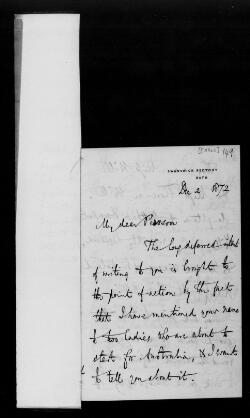 149
SWANSWICK RECTORY
BATH
Dec 2 1872
My dear Pearson
The long deferred intent
of writing to you is brought to
the point of action by the fact
that I have mentioned your name
to two ladies who are about to
start for Australia, & I want
to tell you about it.